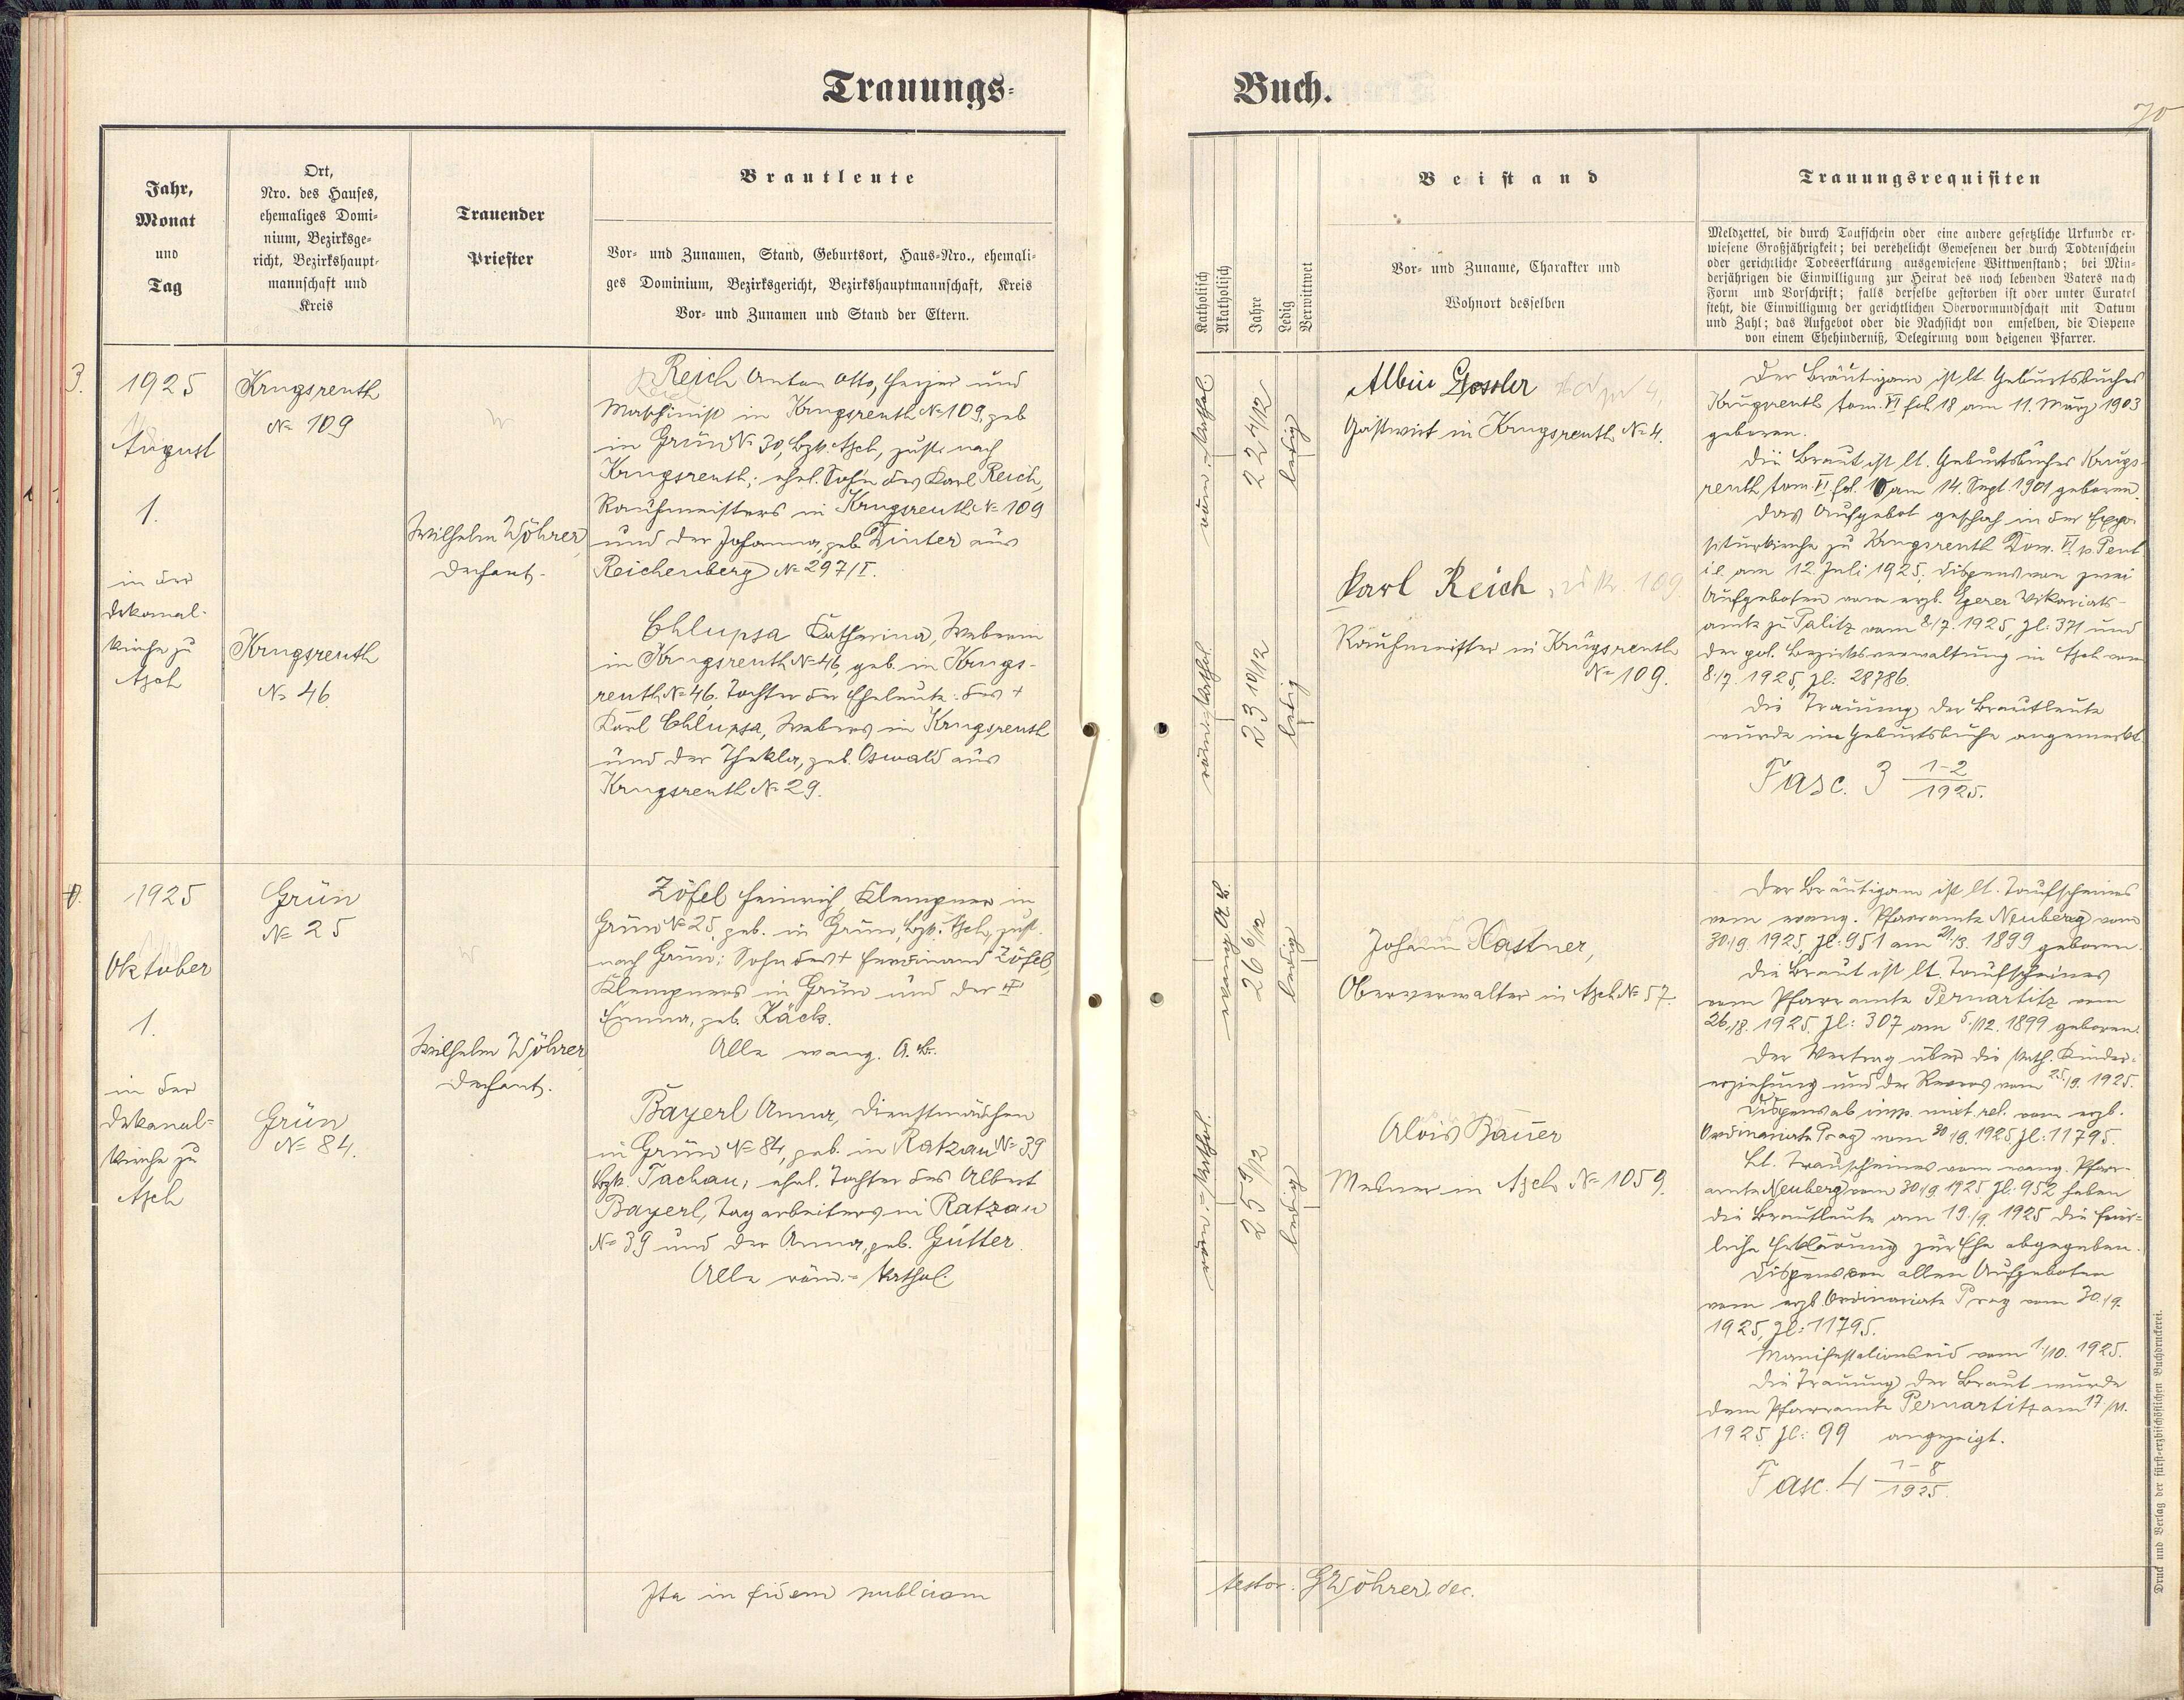 Trauungs-
Buch.
70
Jahr,
Monat
und
Tag
Ort,
Nro. des Hauses,
ehemaliges Domi-
nium, Bezirksge-
richt, Bezirkshaupt-
mannschaft und
Kreis
Trauender
Priester
Brautleute
Vor- und Zunamen, Stand, Geburtsort, Haus-Nro., ehemali-
ges Dominium, Bezirksgericht, Bezirkshauptmannschaft, Kreis
Vor- und Zunamen und Stand der Eltern.
Katholisch
Akatholisch
Jahre
Ledig
Verwittwet
Beistand
Vor- und Zuname, Charakter und
Wohnort desselben
Trauungsrequisiten
Meldzettel, die durch Taufschein oder eine andere gesetzliche Urkunde er-
wiesene Großjährigkeit; bei verehelicht Gewesenen der durch Todtenschein
oder gerichtliche Todeserklärung ausgewiesene Wittwenstand; bei Min-
derjährigen die Einwilligung zur Heirat des noch lebenden Vaters nach
Form und Vorschrift; falls derselbe gestorben ist oder unter Curatel
steht, die Einwilligung der gerichtlichen Obervormundschaft mit Datum
und Zahl; das Aufgebot oder die Nachsicht von emselben, die Dispens
von einem Ehehinderniß, Delegirung vom deigenen Pfarrer.
3.
1925
August
1.
in der
Dekanal-
kirche zu
Asch
Krugsreuth
№ 109
Krugsreuth
№ 46
Wilhelm Wöhrer,
Dechant.
Reich Anton Otto, Heizer und
Maschinist in Krugsreuth № 109, geb
in Grün № 30, Bzk. Asch, zust. nach
Krugsreuth; ehel. Sohn des Karl Reich,
Rauhmeisters in Krugsreuth № 109
und der Johanna, geb. Winter aus
Reichenberg № 297/I.
Chlupsa Katharina, Weberin
in Krugsreuth № 46, geb. in Krugs-
reuth № 46. Tochter der Eheleute: des +
Karl Chlupsa, Webers in Krugsreuth
und der Thekla, geb. Oswald aus
Krugsreuth № 29.
röm.-kathol.
22 4/12
ledig
röm.-kathol.
23 10/12
ledig
Albin Gossler
Gastwirt in Krugsreuth № 4.
Karl Reich
Rauhmeister in Krugsreuth
№ 109.
Der Bräutigam ist lt. Geburtsbuches
Krugsreuth tom. VI fol. 18 am 11. März 1903
geboren.
Die Braut ist lt. Geburtsbuches Krugs-
reuth tom. VI fol. 10 am 14. Sept. 1901 geboren.
Das Aufgebot geschah in der Expo-
siturkirche zu Krugsreuth Dom. VI p. Pent.
i.e. am 12. Juli 1925; Dispens von zwei
Aufgeboten vom erzb. Egerer Vikariats-
amte zu Palitz vom 8./7. 1925, Zl: 371 und
der pol. Bezirksverwaltung in Asch vom
8./7. 1925, Zl: 28786.
Die Trauung der Brautleute
wurde im Geburtsbuche angemerkt.
Fasc. 3 1-2/1925.
1925
Oktober
1.
in der
Dekanal-
kirche zu
Asch
Grün
№ 25
Grün
№ 84.
Wilhelm Wöhrer,
Dechant.
Zöfel Heinrich, Klempner in
Grün № 25, geb. in Grün, Bzk. Asch, zust.
nach Grün; Sohn des + Ferdinand Zöfel,
Klempners in Grün und der +
Emma, geb. Käck.
Alle evang. A.B.
Bayerl Anna, Dienstmädchen
in Grün № 84, geb. in Ratzau № 39
Bzk. Tachau, ehel. Tochter des Albert
Bayerl, Tagarbeiters in Ratzau
№ 39 und der Anna, geb. Gütter.
Alle röm.-kathol.
evang. A.B.
26 6/12
ledig
röm.-kathol.
25 9/12
ledig
Johann Kastner,
Oberverwalter in Asch № 57.
Alois Bauer
Mesner in Asch № 1059.
Der Bräutigam ist lt. Taufscheines
vom evang. Pfarramte Neuberg vom
30./9. 1925, Zl: 951 am 21./3. 1899 geboren.
Die Braut ist lt. Taufscheines
vom Pfarramte Pernartitz vom
26./8. 1925, Zl: 307 am 5./12. 1899 geboren.
Der Vertrag über die kath. Kinder-
erziehung und der Revers vom 25./9. 1925.
Dispens ab imp. mixt. rel. vom erzb.
Ordinariate Prag vom 30./9. 1925 Zl: 11795.
Lt. Trauscheines vom evang. Pfarr-
amte Neuberg vom 30./9. 1925 Zl: 952 haben
die Brautleute am 19./9. 1925 die feier-
liche Erklärung zur Ehe abgegeben.
Dispens von allen Aufgeboten
vom erzb. Ordinariate Prag vom 30./9.
1925, Zl: 11795.
Manifestationseid vom 1./10. 1925.
Die Trauung der Braut wurde
dem Pfarramte Pernartitz am 17./11.
1925, Zl: 99 angezeigt.
Fasc. 4 1-8/1925.
Ita in fidem publicam
testor. GWöhrer, dec.
Druck und Verlag der fürst-erzbischöflichen Buchdruckerei.